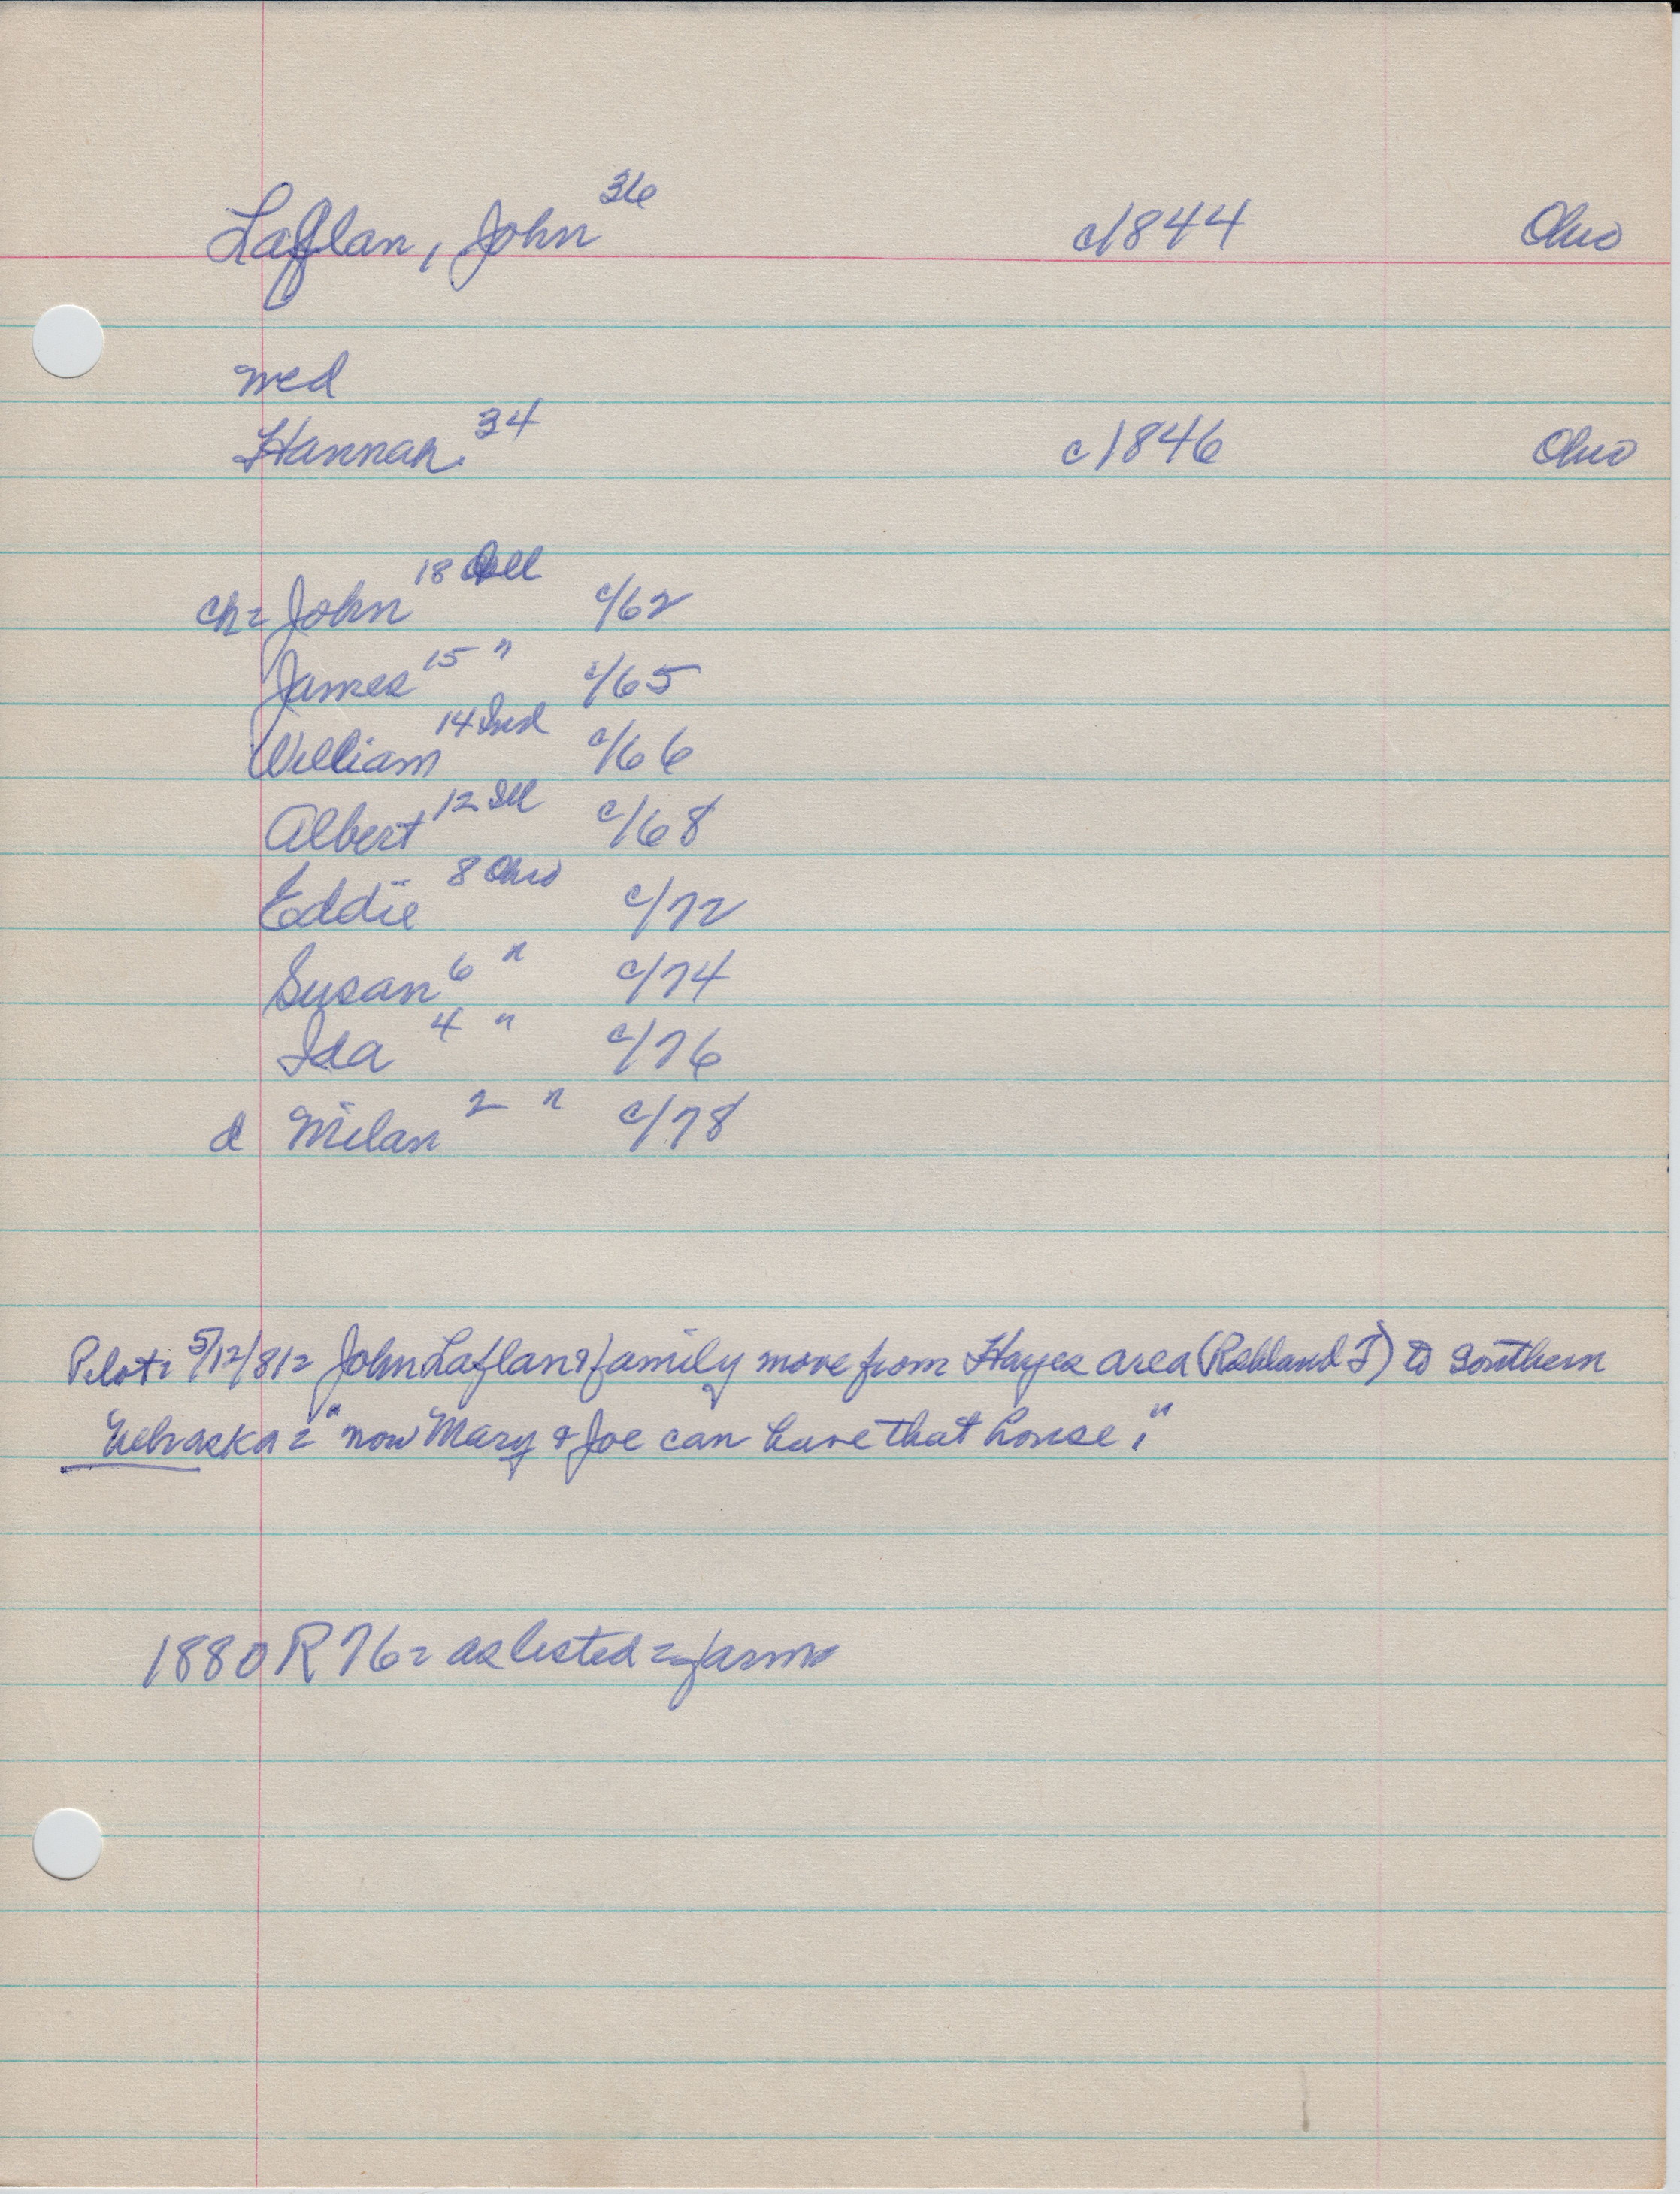 Laflan, John 36 c1844 Ohio
med
Hannah 34 c1846 Ohio
ch= John 18 Ill c/62
James 15 " c/65
William 14 Ind c/66
Albert 12 Ill c/68
Eddie 8 Ohio c/72
Susan 6 " c/74
Ida 4 " c/76
d Milan 2 " c/78
Pilot= 5/12/81= John Laflan & family move from Hayes area (Richland T) to southern
Nebraska = "now Mary & Joe can have that house."
1880 R 76= as listed = farmr